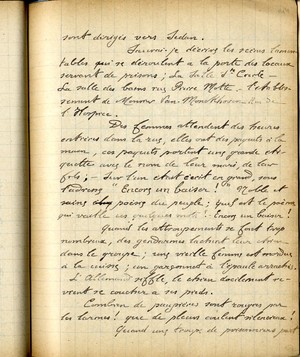 sont dirigés vers Sedan.
Saurai-je décrire les scènes lamen-
tables qui se déroulent à la porte des locaux
servant de prisons ; La Salle Ste
La salle des bains rue Notte, l'établis-
sement de Monsieur Van de
l'Hospice.
Des femmes attendent des heures
entières dans la rue, elles ont des paquets à la
main, ces paquets portent une grande éti-
quette avec le nom de leur mari, de leur
fils ; Sur l'un était écrit en grand, sous
l'adresse "Encore un baiser !" Noble et
du peuple ; quel est le poème
qui vaille ces quelques mots ! Encore un baiser !
Quand les attroupements se font trop
nombreux, des gendarmes lâchent leur chien
dans le groupe ; une vieille femme est mordue
à la cuisse ; un garçonnet à l'épaule arrachée.
L'Allemand siffle, le chien docilement re-
vient se coucher à ses pieds.
Combien de paupières sont rougies par
les larmes ! que de pleurs coulent
Quand une troupe de prisonniers part